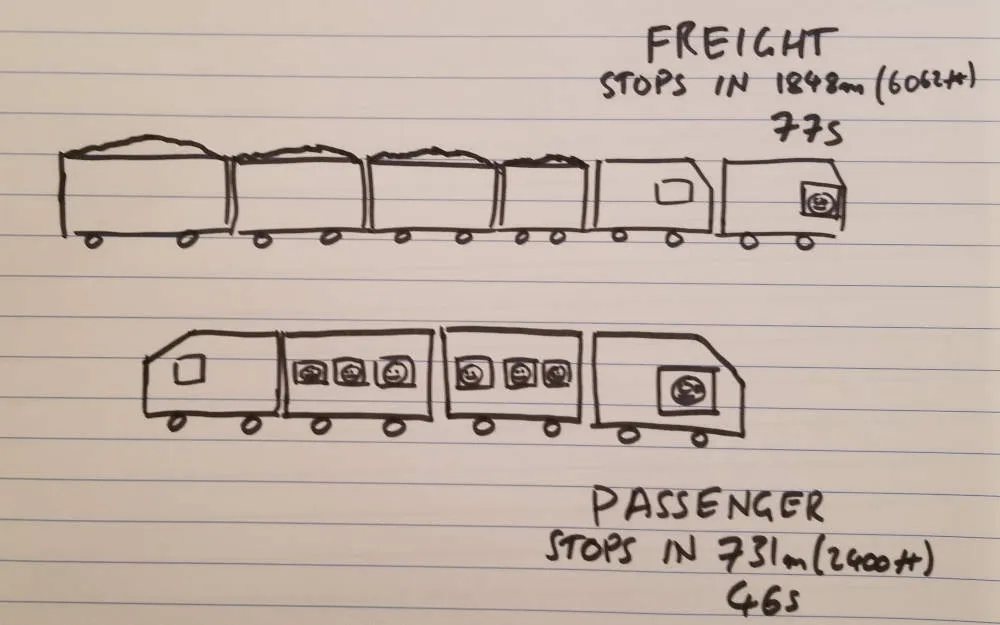 FREIGHT
STOPS IN 1848m (6062ft)
77s
PASSENGER
STOPS IN 731m (2400ft)
46s